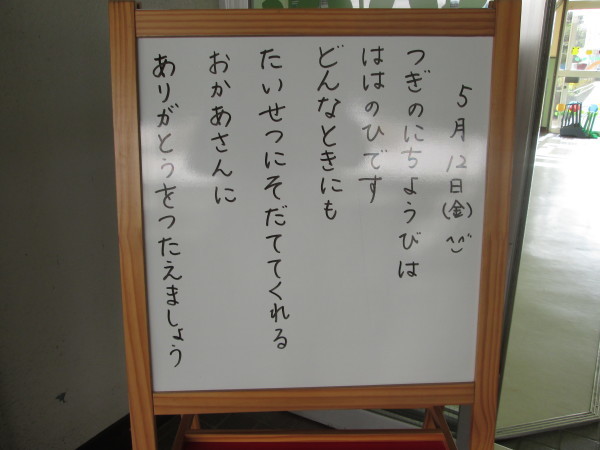 5月12日(金)^^
つぎのにちようびは
ははのひです
どんなときにも
たいせつにそだててくれる
おかあさんに
ありがとうをつたえましょう